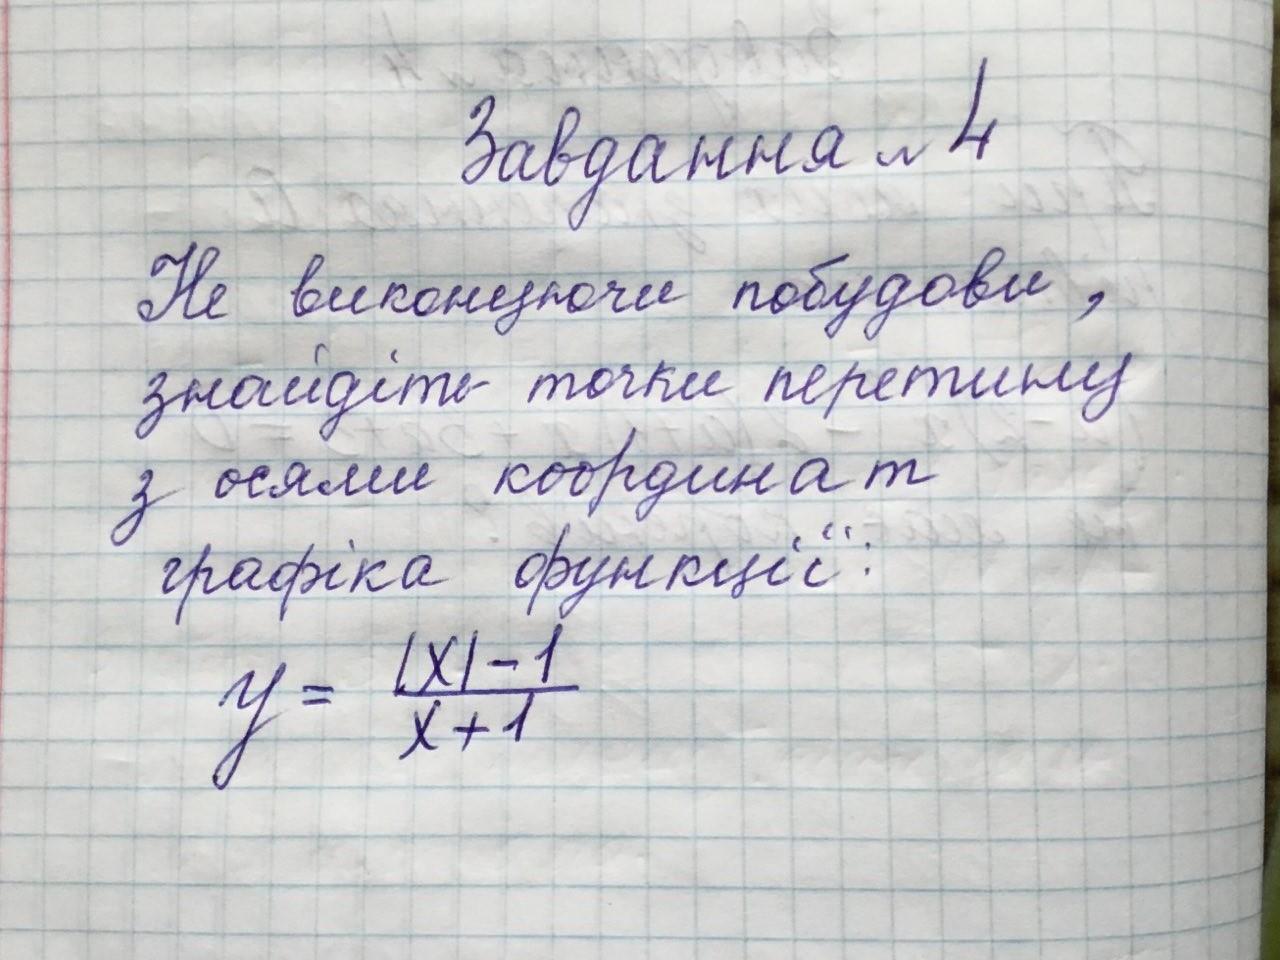 Завдання № 4
Не виконуючи побудови,
знайдіть точки перетину
з осями координат
графіка функції:
y = (|x| - 1)/(x + 1)